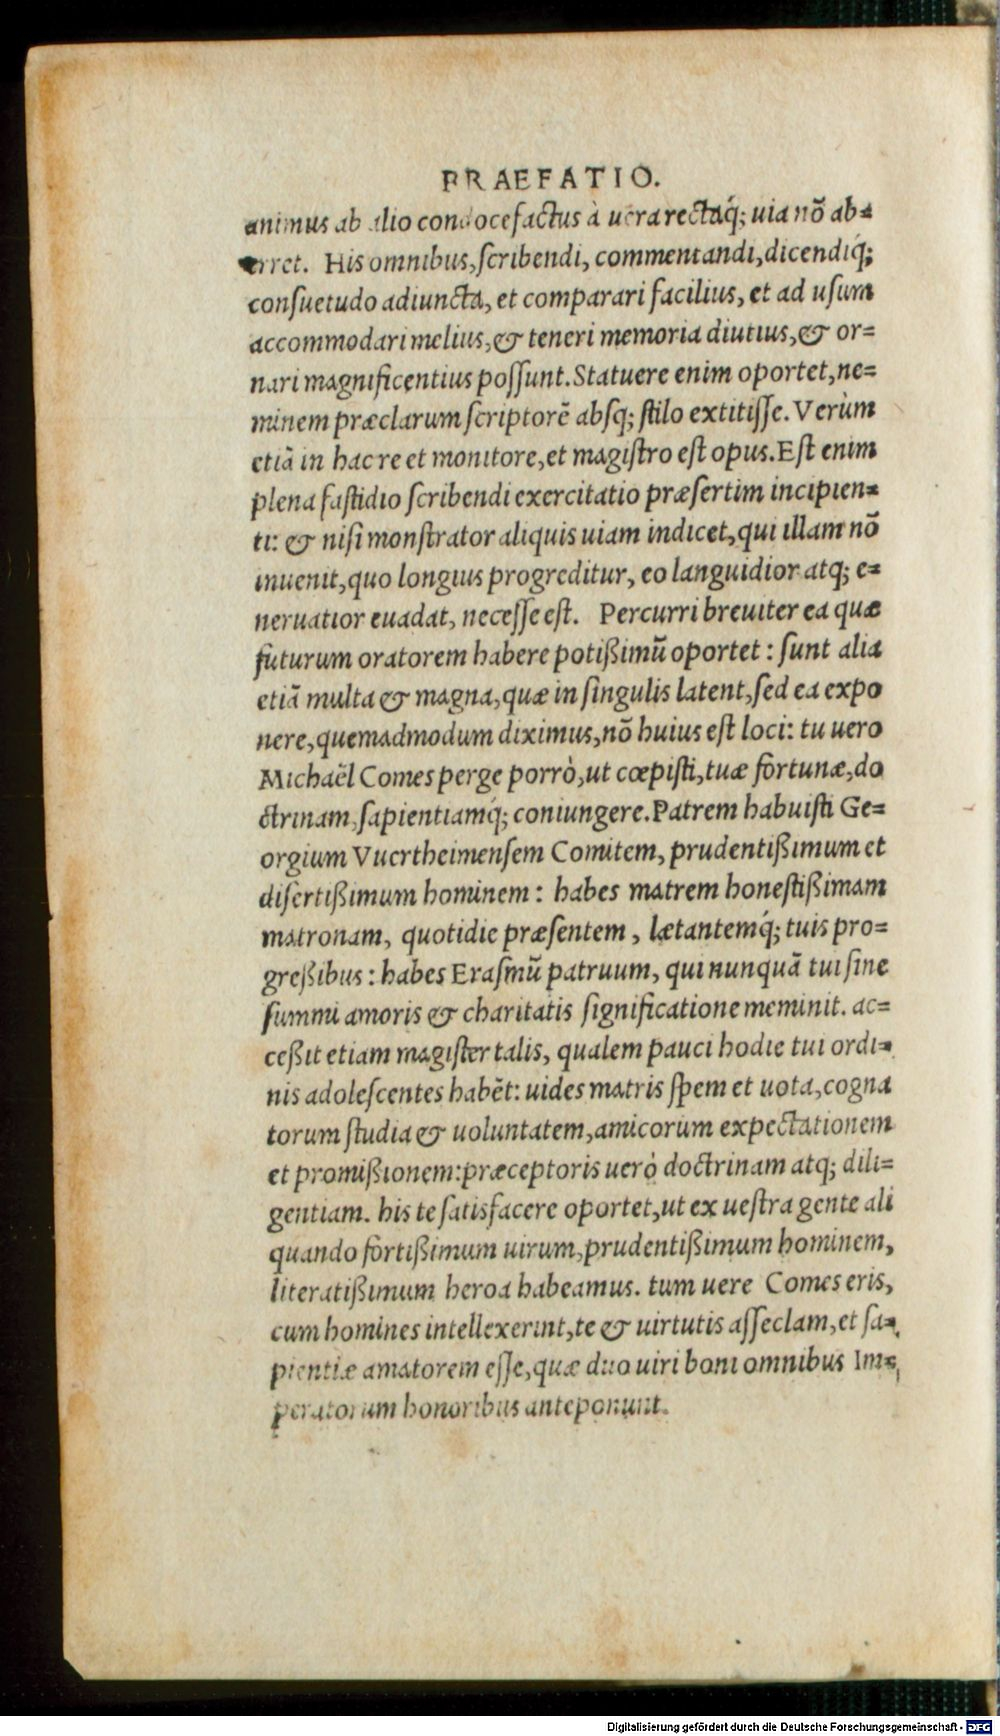 PRAEFATIO.
animus ab alio condocefactus à uera rectaq́; uia nō ab=
erret. His omnibus, scribendi, commentandi, dicendiq́;
consuetudo adiuncta, et comparari facilius, et ad usum
accommodari melius, & teneri memoria diutius, & or=
nari magnificentius possunt. Statuere enim oportet, ne=
minem præclarum scriptorē absq; stilo extitisse. Verùm
etiā in hac re et monitore, et magistro est opus. Est enim
plena fastidio scribendi exercitatio præsertim incipien=
ti: & nisi monstrator aliquis uiam indicet, qui illam nō
inuenit, quo longius progreditur, eo languidior atq; e=
neruatior euadat, necesse est. Percurri breuiter ea quæ
futurum oratorem habere potißimū oportet: sunt alia
etiā multa & magna, quæ in singulis latent, sed ea expo
nere, quemadmodum diximus, nō huius est loci: tu uero
Michaël Comes perge porrò, ut cœpisti, tuæ fortunæ, do
ctrinam, sapientiamq́; coniungere. Patrem habuisti Ge=
orgium Vuertheimensem Comitem, prudentißimum et
disertißimum hominem: habes matrem honestißimam
matronam, quotidie præsentem, lætantemq́; tuis pro=
greßibus: habes Erasmū patruum, qui nunquā tui sine
summi amoris & charitatis significatione meminit. ac=
ceßit etiam magister talis, qualem pauci hodie tui ordi=
nis adolescentes habēt: uides matris spem et uota, cogna
torum studia & uoluntatem, amicorum expectationem
et promißionem: præceptoris uerò doctrinam atq; dili=
gentiam. his te satisfacere oportet, ut ex uestra gente ali
quando fortißimum uirum, prudentißimum hominem,
literatißimum heroa habeamus. tum uere Comes eris,
cum homines intellexerint, te & uirtutis asseclam, et sa=
pientiæ amatorem esse, quæ duo uiri boni omnibus Im=
peratorum honoribus anteponunt.
Digitalisierung gefördert durch die Deutsche Forschungsgemeinschaft - DFG